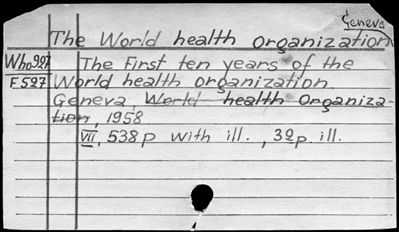 Geneva
The World health organization
Who927 The First ten years of the
F597 World health organization
Geneva, World health Organiza-
tion, 1958
VII, 538p with ill., 32p. ill.